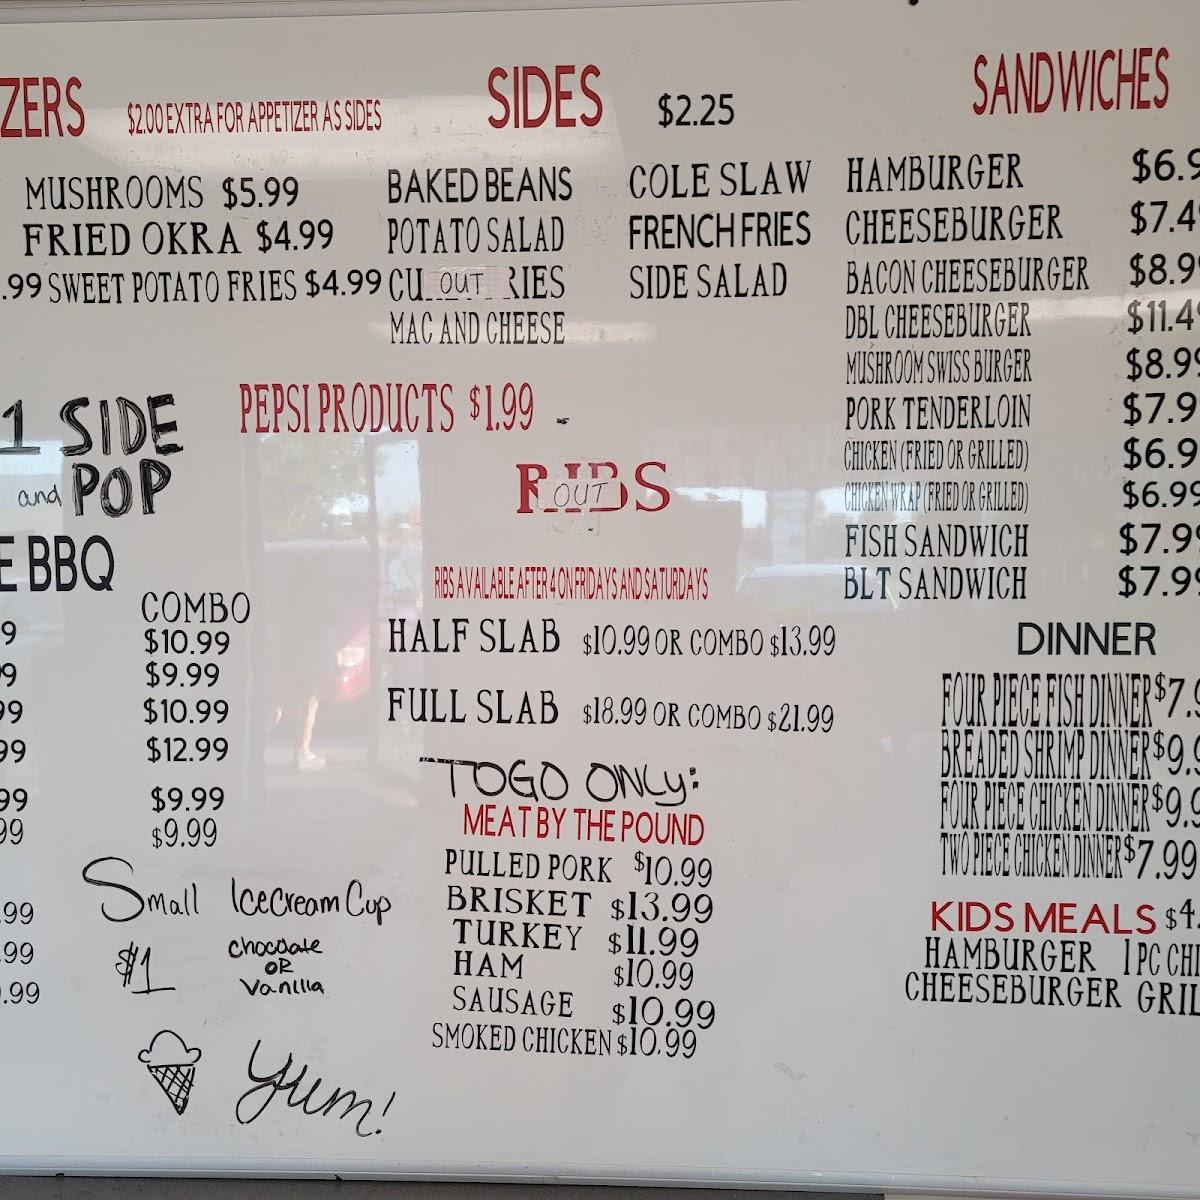 ZERS
$2.00 EXTRA FOR APPETIZER AS SIDES
MUSHROOMS $5.99
FRIED OKRA $4.99
.99 SWEET POTATO FRIES $4.99
SIDES $2.25
BAKED BEANS COLE SLAW
POTATO SALAD FRENCH FRIES
CU OUT RIES SIDE SALAD
MAC AND CHEESE
1 SIDE
and POP
PEPSI PRODUCTS $1.99
E BBQ
COMBO
9 $10.99
99 $9.99
99 $10.99
99 $12.99
99 $9.99
99 $9.99
.99
.99
.99
Small Ice Cream Cup
$1 Chocolate
OR
Vanilla
Yum!
RIBS
OUT
RIBS AVAILABLE AFTER 4 ON FRIDAYS AND SATURDAYS
HALF SLAB $10.99 OR COMBO $13.99
FULL SLAB $18.99 OR COMBO $21.99
TOGO ONLY:
MEAT BY THE POUND
PULLED PORK $10.99
BRISKET $13.99
TURKEY $11.99
HAM $10.99
SAUSAGE $10.99
SMOKED CHICKEN $10.99
SANDWICHES
HAMBURGER $6.9
CHEESEBURGER $7.4
BACON CHEESEBURGER $8.9
DBL CHEESEBURGER $11.4
MUSHROOM SWISS BURGER $8.9
PORK TENDERLOIN $7.9
CHICKEN (FRIED OR GRILLED) $6.9
CHICKEN WRAP (FRIED OR GRILLED) $6.99
FISH SANDWICH $7.99
BLT SANDWICH $7.99
DINNER
FOUR PIECE FISH DINNER $7.9
BREADED SHRIMP DINNER $9.9
FOUR PIECE CHICKEN DINNER $9.9
TWO PIECE CHICKEN DINNER $7.99
KIDS MEALS $4.
HAMBURGER 1 PC CHI
CHEESEBURGER GRIL